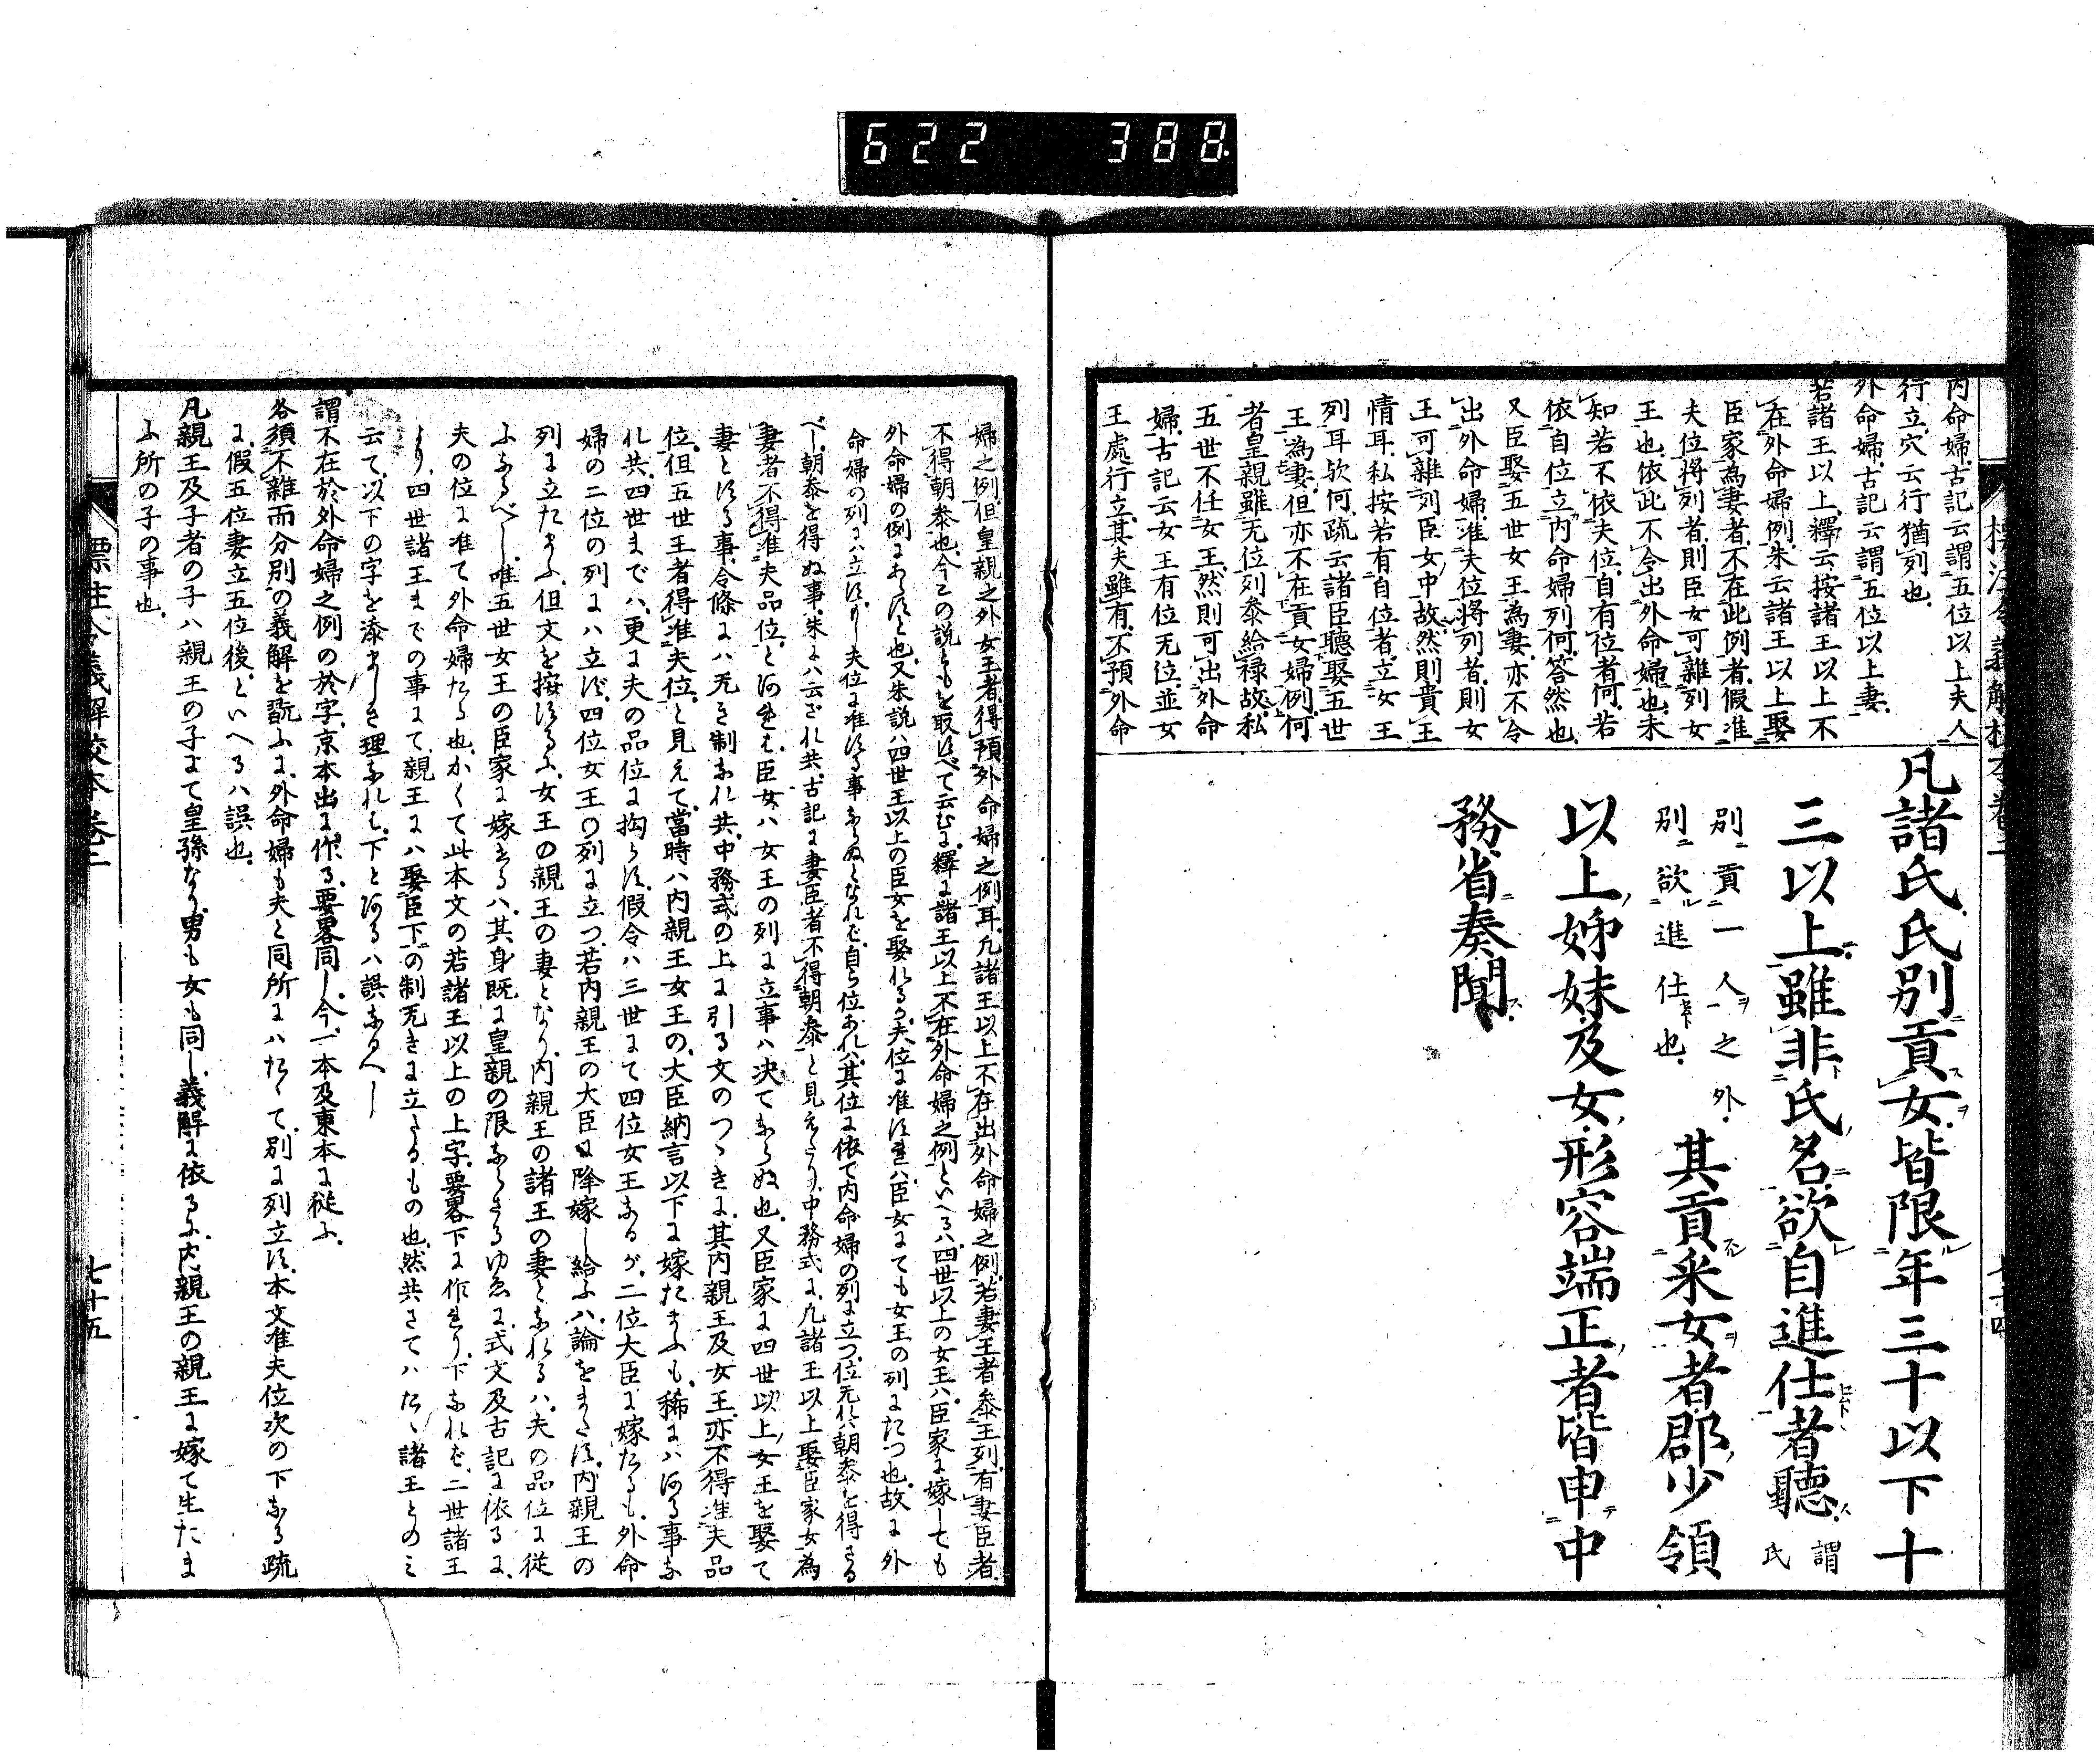 622 388
標注令義解校本卷二
内命婦古記云謂五位以上夫人
行立穴云行猶列也
外命婦古記云謂五位以上妻
若諸王以上釋云按諸王以上不
在外命婦例朱云諸王以上娶
臣家為妻者不在此例者假准
夫位將列者則臣女可雜列女
王也依此不令出外命婦也未
知若不依夫位自有位者何若
依自位立内命婦列何答然也
又臣娶五世女王為妻亦不令
出外命婦准夫位將列者則女
王可雜列臣女中故然則貴王
情耳私按若有自位者立女王
列耳欤何疏云諸臣聽娶五世
王為妻但亦不在貢女婦例何
者皇親雖无位列叅給禄故私
五世不任女王然則可出外命
婦古記云女王有位无位並女
王處行立其夫雖有不預外命
凡諸氏氏別貢女皆限年三十以下十
三以上雖非氏名欲自進仕者聽謂氏
別貢一人之外
別欲進仕也
其貢釆女者郡少領
以上姊妹及女形容端正者皆申中
務省奏聞
婦之例但皇親之外女王者得預外命婦之例耳凡諸王以上不在出外命婦之例若妻王者叅王列有妻臣者
不得朝叅也今この説ともを取すべて云むに釋に諸王以上不在外命婦之例といへるハ四世以上の女王ハ臣家に嫁しても
外命婦の例にあらすと也又朱説ハ四世王以上の臣女を娶れる夫位に准すれハ臣女にても女王の列にたつ也故に外
命婦の列にハ立すかし夫位に准する事ならぬとなれど自ら位あれハ其位に依て内命婦の列に立つ位无れハ朝叅を得さる
べし朝叅を得ぬ事朱にハ云ざれ共古記に妻臣者不得朝叅と見えたり中務式に凡諸王以上娶臣家女為
妻者不得准夫品位とあれも臣女ハ女王の列に立事ハ決てならぬ也又臣家に四世以上女王を娶て
妻とする事令條にハ无き制なれ共中務式の上に引る文のつゝきに其内親王及女王亦不得准夫品
位但五世王者得准夫位と見えて當時ハ内親王女王の大臣納言以下に嫁たまふも稀にハある事な
れ共四世までハ更に夫の品位に拘らす假令ハ三世にて四位女王なるが二位大臣に嫁たるも外命
婦の二位の列にハ立ず四位女王の列に立つ若内親王の大臣に降嫁し給ふハ論をまたす内親王の
列に立たまふ但文を按するふ女王の親王の妻となり内親王の諸王の妻となれるハ夫の品位に從
ふなるべし唯五世女王の臣家に嫁するハ其身既に皇親の限ならさるゆゑに式文及古記に依るに
夫の位に准て外命婦たる也かくて此本文の若諸王以上の上字要畧下に作れり下なれど二世諸王
より四世諸王までの事にて親王にハ娶臣下の制无きに立さるもの也然共さてハたゝ諸王とのミ
云て以下の字を添ましき理なれも下とあるハ誤なるへし
謂不在於外命婦之例の於字京本出に作る要畧同し今一本及東本に從ふ
各須不雜而分別の義解を翫ふに外命婦も夫と同所にハたゝて別に列立す本文准夫位次の下なる疏
に假五位妻立五位後といへるハ誤也
凡親王及子者の子ハ親王の子にて皇孫なり男も女も同し義解に依るに内親王の親王に嫁て生たま
ふ所の子の事也
標註令義解校本卷二
七十五